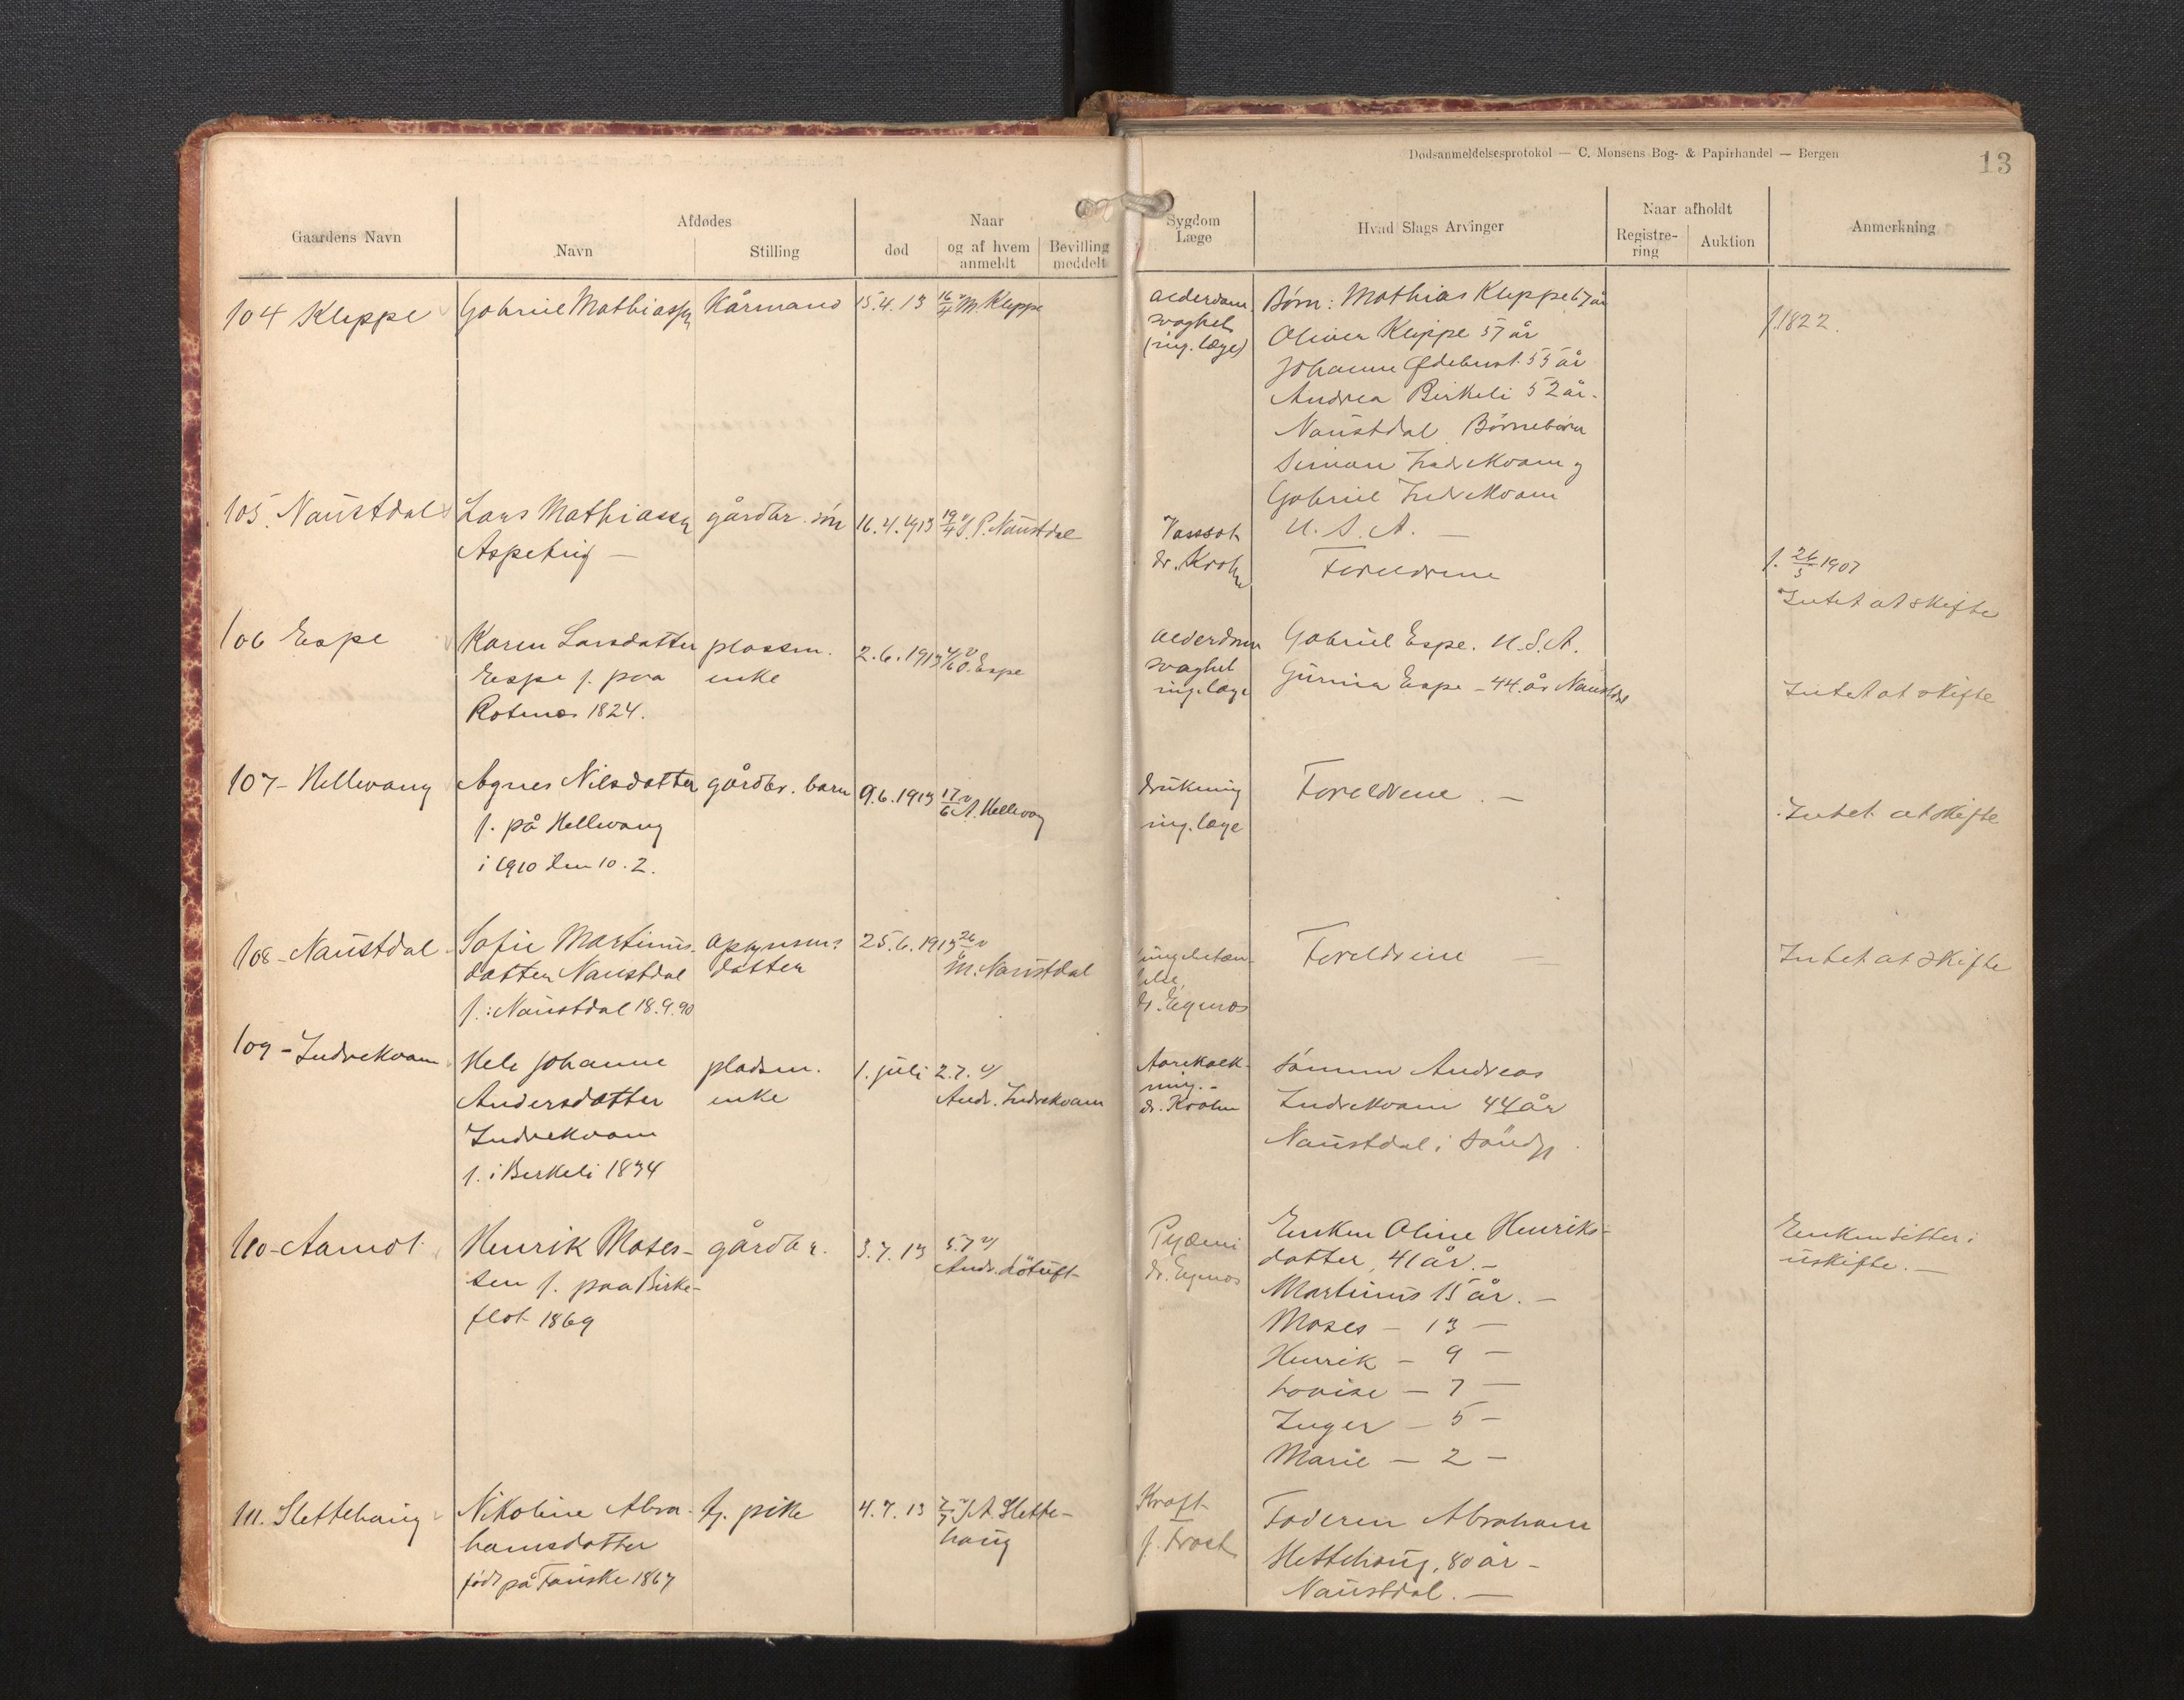 Dødsanmeldelsesprotokol — C. Monsens Bog- & Papirhandel — Bergen
13
Gaardens Navn
Afdødes
Navn
Stilling
død
Naar
og af hvem
anmeldt
Bevilling
meddelt
Sygdom
Læge
Hvad Slags Arvinger
Naar afholdt
Registre-
ring
Auktion
Anmerkning
104 Kleppe Gabriel Mathiassen Kårmand 15.4.13 16/4 v M. Kleppe
Alderdoms
svaghet
(ing. læge)
Børn: Mathias Kleppe 67 år
Oliver Kleppe 57 år
Johanne 55 år
Andrea Birkeli 52 år.
Naustdal. Børnebørn
Simon Indrekvam og
Gabriel Indrekvam
U. S. A. —
f. 1822.
105. Naustdal Lars Mathiassen gårdbr. søn 16.4.1913 19/4 v P. Naustdal
—
dr. Krohn
Foreldrene
f. 26/3 1907
Intet at skifte
106 Espe Karen Larsdatter plassm. 2.6.1913 4/6 v O. Espe
Espe f. paa enke
Rotnes 1824.
Alderdoms
svaghet
ing. læge
Gabriel Espe. U.S.A.
Espe — 44 år Naustdal
Intet at skifte
107 - Hellevang Agnes Nilsdatter gårdbr. barn 9.6.1913 17/6 v A. Hellevang
f. på Hellevang
i 1910 den 10. 2.
drukning
ing. læge
Foreldrene. —
Intet at skifte
108 - Naustdal Sofie Martinus- datter 25.6.1913 26/6 v
datter Naustdal M. Naustdal
f. i Naustdal 18.9.90
lungebetæn-
delse
dr. Eqmos
Foreldrene —
Intet at skifte
109 - Indrekvam Hele Johanne pladsm. 1. juli 2.7. v/
Andersdatter enke Andr. Indrekvam
Indrekvam
f. i Birkeli 1834
Aarekalk-
ning. -
dr. Krohn
Sønnen Andreas
Indrekvam 44 år
Naustdal i Søndfj.
110 - Aamot Henrik Moses- gårdbr. 3.7.13 5.7 v/
sen f. paa Birke- Andr. Løtuft
flot 1869
Pyæmi
dr. Eqmos
Enken Oline Henriks-
datter, 41 år. —
Martinus 15 år. —
Moses — 13 —
Henrik — 9 —
Lovise — 7 —
Inger — 5 —
Marie — 2 —
Enken sitter i
uskifte. —
111. Slettehaug Nikoline Abra- tj. pike 4.7.13 7/7 v J. A. Slette-
hamsdatter haug
født på Fauske 1867
Kræft
f. Frost
Faderen Abraham
Slettehaug, 80 år —
Naustdal. —